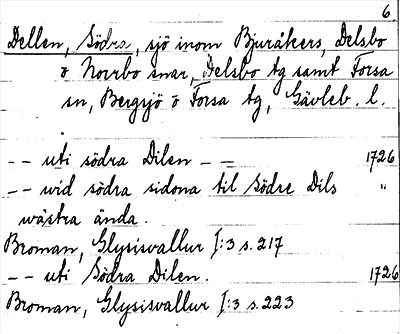 6.
Dellen, Södra, sjö inom Bjuråkers, Delsbo
o Norrbo snar, Delsbo tg samt Forsa
sn, Bergsjö o Forsa tg, Gävleb. l.
-- uti södra Dilen -- 1726
-- wid södra sidona til Södre Dils "
wästra ända.
Broman, Glysisvallur I:3 s. 217
-- uti Södra Dilen. 1726
Broman, Glysisvallur I:3 s. 223